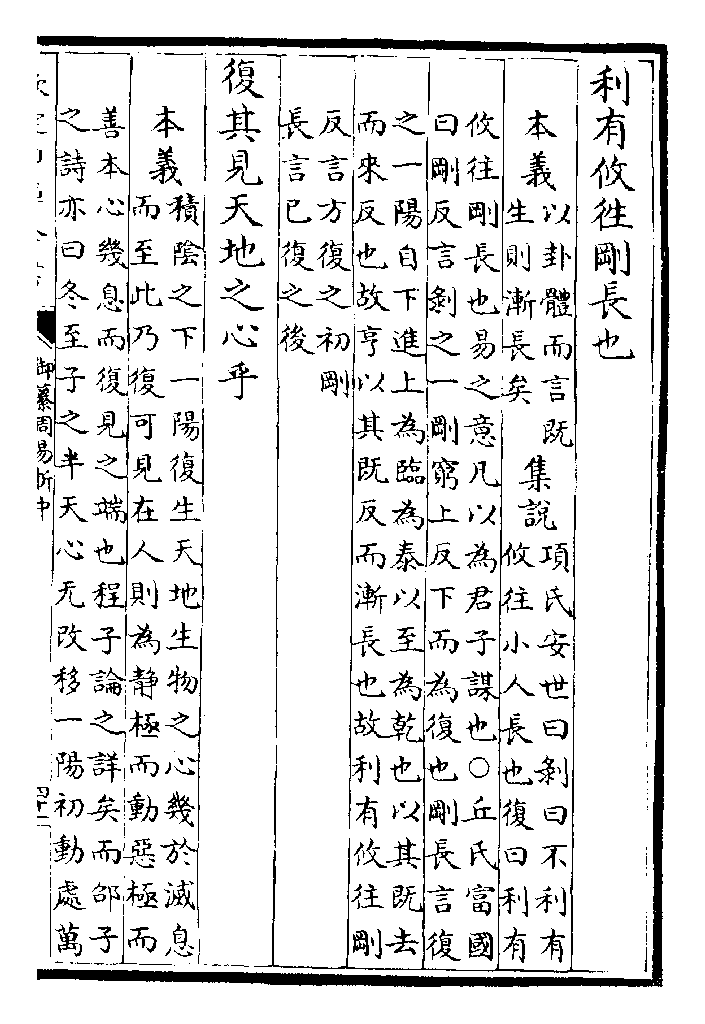 利有攸徃剛長也
本義以卦體而言既
生則漸長矣
集說項氏安世曰剝曰不利有
攸往小人長也復曰利有
攸往剛長也易之意凡以為君子謀也○丘氏富國
曰剛反言剝之一剛窮上反下而為復也剛長言復
之一陽自下進上為臨為泰以至為乾也以其既去
而來反也故亨以其既反而漸長也故利有攸往剛
反言方復之初剛
長言已復之後
復其見天地之心乎
本義積陰之下一陽復生天地生物之心幾於滅息
而至此乃復可見在人則為静極而動惡極而
善本心幾息而復見之端也程子論之詳矣而邵子
之詩亦曰冬至子之半天心无改移一陽初動處萬
御纂周易折中